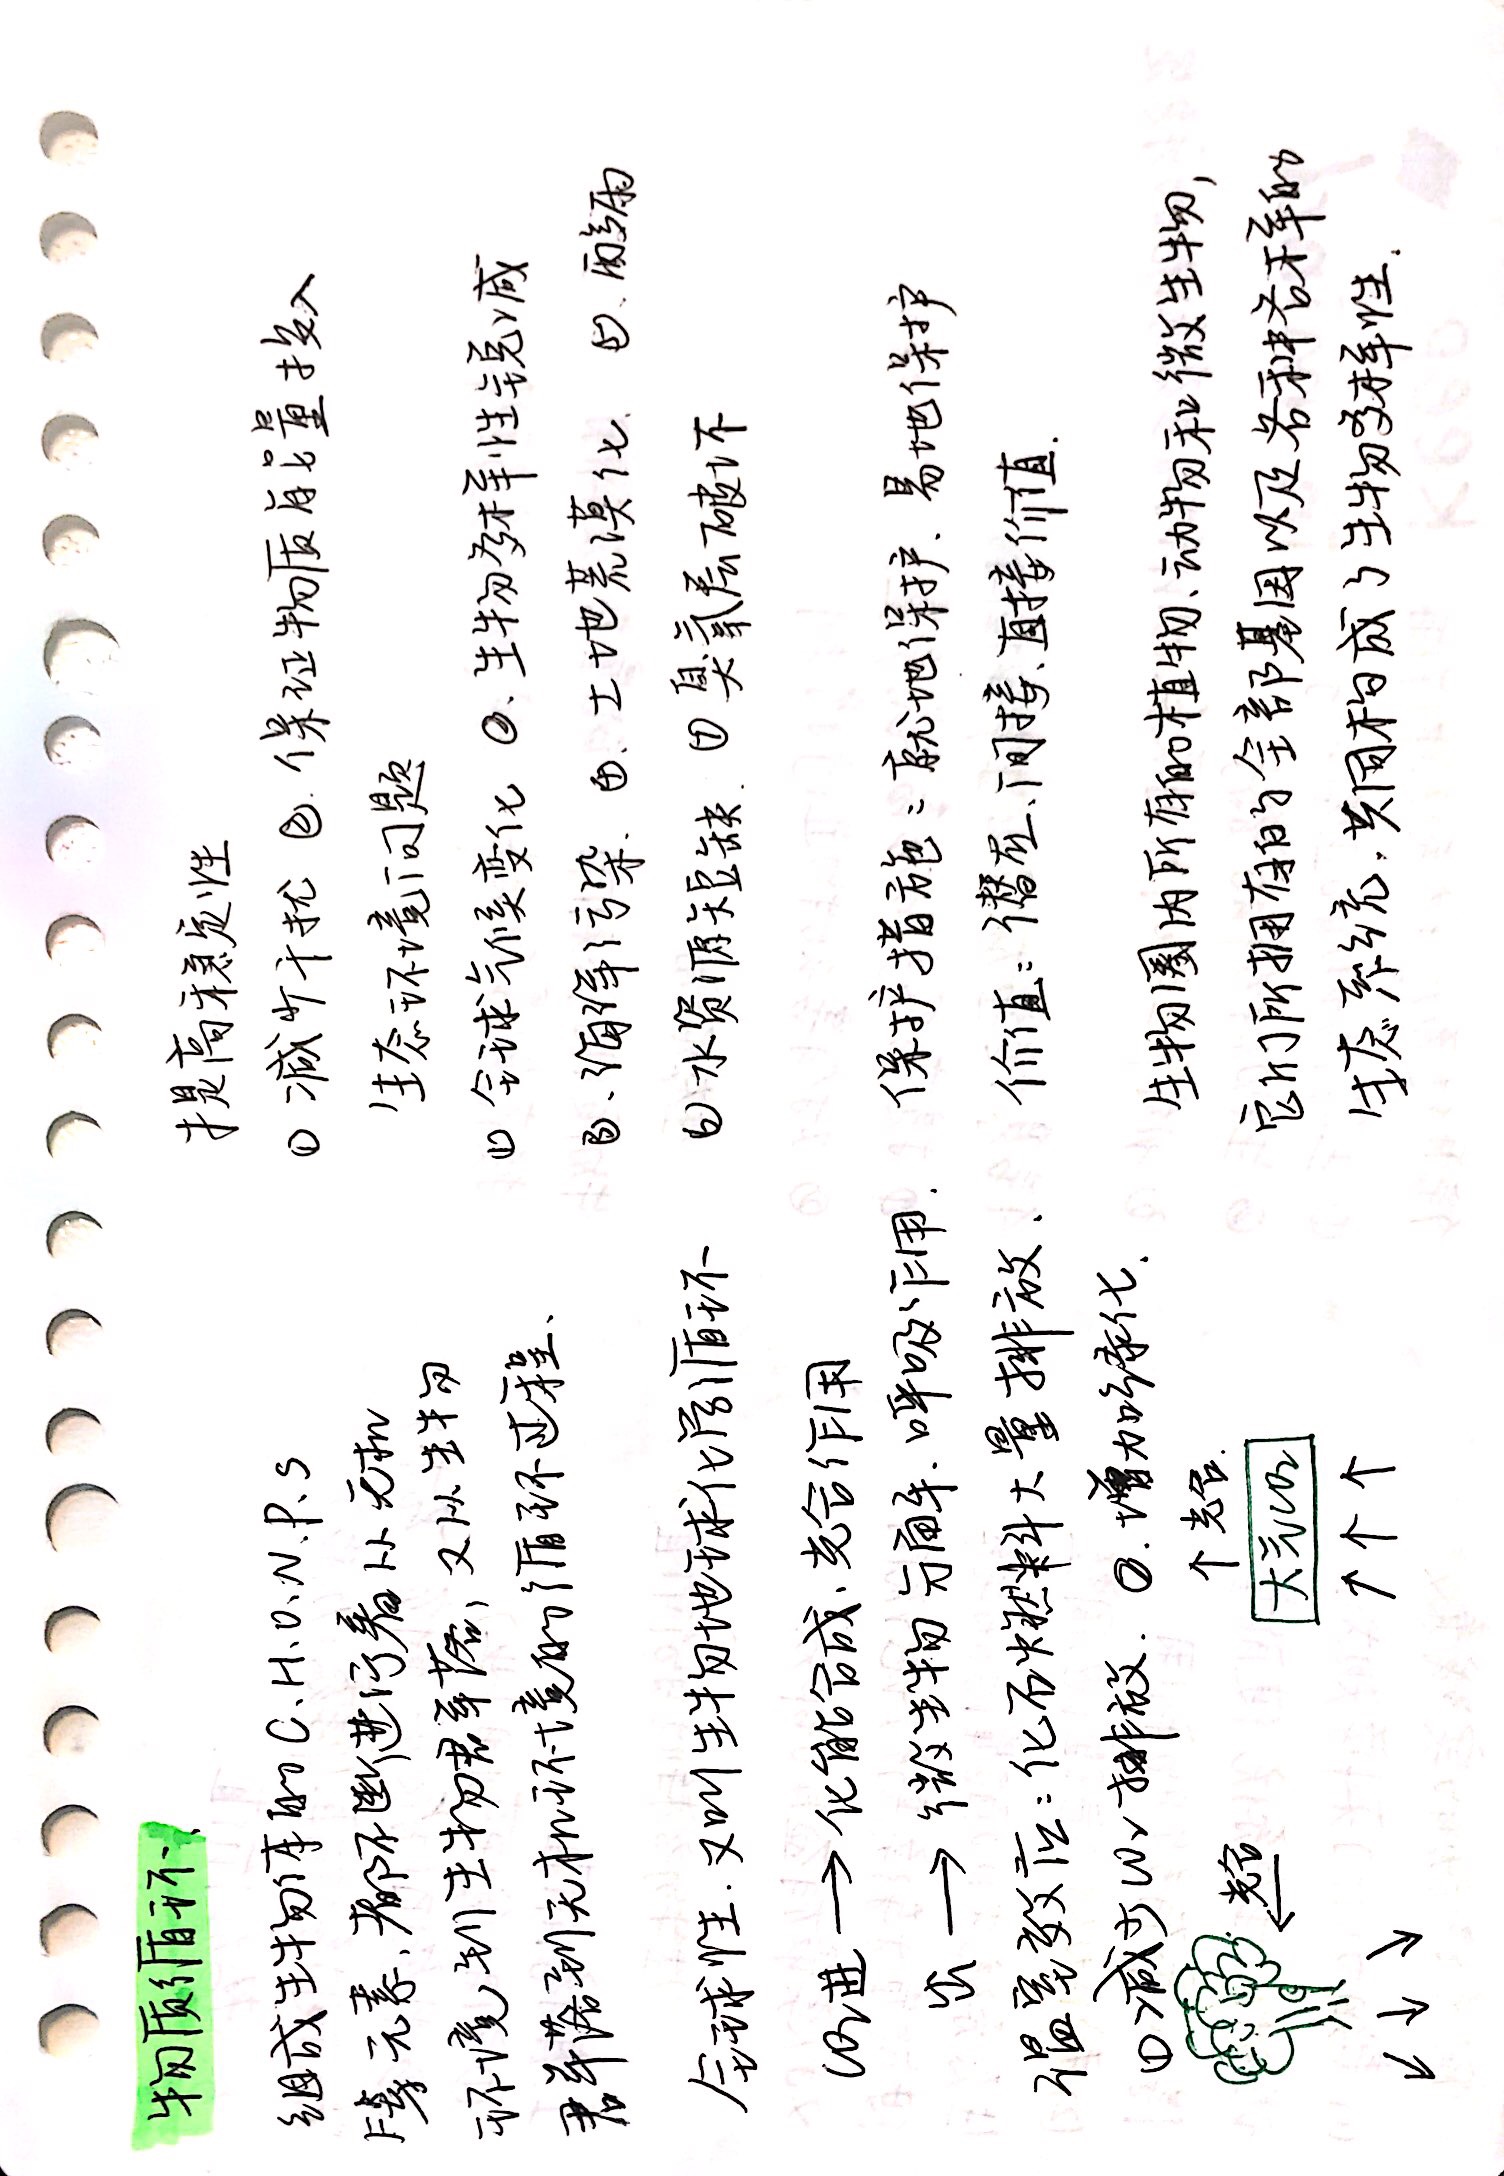 物质循环、
组成生物体的C.H.O.N.P.S
等元素,都不断进行着从无机
环境,到生物群落,又从生物
群落到无机环境的循环过程、
全球性.又叫生物地球化学循环
CO₂进→化能合成、光合作用
出→微生物分解.呼吸作用.
温室效应:化石燃料大量排放.
①减少CO₂排放. ②.增加绿化.
光合
↑光合
大气CO₂
提高稳定性
①减少干扰 ②.保证物质能量投入
生态环境问题
①全球气候变化 ②、生物多样性锐减
③、海洋污染. ④、土地荒漠化. ⑤、酸雨
⑥水资源短缺. ⑦臭氧层破坏
保护措施:就地保护、易地保护
价值:潜在、间接、直接价值.
生物圈内所有的植物、动物和微生物,
它们所拥有的全部基因以及各种各样的
生态系统,共同构成了生物多样性.